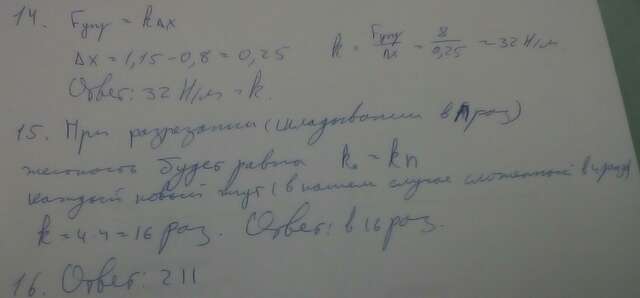 14. Fупр = kΔx
Δx = 1,15 - 0,8 = 0,25 k = Fупр/Δx = 8/0,25 = 32 Н/м
Ответ: 32 Н/м = k.
15. При разрезании (складывании в n раз)
жесткость будет равна k₀ = kn
каждый новый жгут (в нашем случае сложенный в 4 раза)
k = 4·4 = 16 раз. Ответ: в 16 раз.
16. Ответ: 211